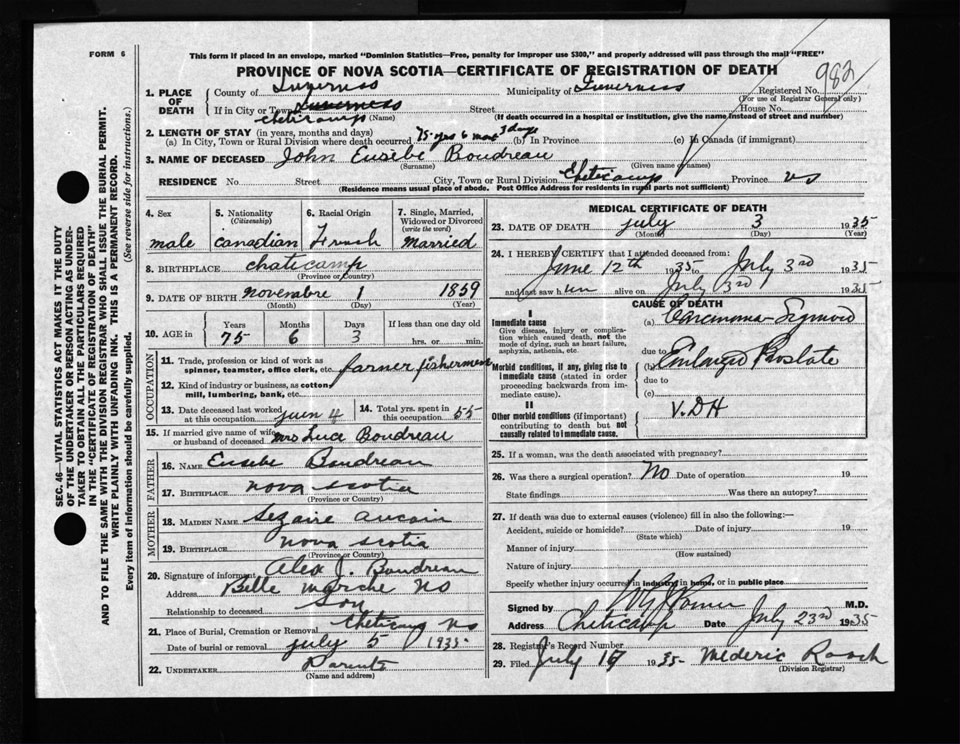 FORM 6
This form if placed in an envelope, marked "Dominion Statistics—Free, penalty for improper use $300," and properly addressed will pass through the mail "FREE"
PROVINCE OF NOVA SCOTIA—CERTIFICATE OF REGISTRATION OF DEATH
982
1. PLACE OF DEATH
County of Inverness Municipality of Inverness Registered No.
(For use of Registrar General only)
If in City or Town Inverness Cheticamp (Name) Street House No.
(If death occurred in a hospital or institution, give the name instead of street and number)
2. LENGTH OF STAY (in years, months and days)
(a) In City, Town or Rural Division where death occurred 75 yrs 6 mos 3 days (b) In Province (c) In Canada (if immigrant)
3. NAME OF DECEASED John Eusebe Boudreau
(Surname) (Given name or names)
RESIDENCE No. Street City, Town or Rural Division Cheticamp Province NS
(Residence means usual place of abode. Post Office Address for residents in rural parts not sufficient)
4. Sex male
5. Nationality (Citizenship) canadian
6. Racial Origin French
7. Single, Married, Widowed or Divorced (write the word) Married
8. BIRTHPLACE chaticamp
(Province or Country)
9. DATE OF BIRTH novembre 1 1859
(Month) (Day) (Year)
10. AGE in Years 75 Months 6 Days 3 If less than one day old hrs. or min.
OCCUPATION
11. Trade, profession or kind of work as spinner, teamster, office clerk, etc. farmer fisherment
12. Kind of industry or business, as cotton mill, lumbering, bank, etc.
13. Date deceased last worked at this occupation juin 4
14. Total yrs. spent in this occupation 55
15. If married give name of wife or husband of deceased Mrs Luce Boudreau
FATHER
16. NAME Eusebe Boudreau
17. BIRTHPLACE nova scotia
(Province or Country)
MOTHER
18. MAIDEN NAME Sezaire aucoin
19. BIRTHPLACE nova scotia
(Province or Country)
20. Signature of informant Alex J. Boudreau
Address Belle marche NS
Relationship to deceased Son
21. Place of Burial, Cremation or Removal Cheticamp NS
Date of burial or removal july 5 1935
22. UNDERTAKER Parents
(Name and address)
MEDICAL CERTIFICATE OF DEATH
23. DATE OF DEATH july 3 1935
(Month) (Day) (Year)
24. I HEREBY CERTIFY that I attended deceased from:
June 12th 1935 to July 3rd 1935
and last saw him alive on July 3rd 1935
CAUSE OF DEATH
I
Immediate cause
Give disease, injury or complication which caused death, not the mode of dying, such as heart failure, asphyxia, asthenia, etc.
(a) Carcinoma-Sigmoid
due to
Morbid conditions, if any, giving rise to immediate cause (stated in order proceeding backwards from immediate cause).
(b) Enlarged Prostate
due to
(c)
II
Other morbid conditions (if important) contributing to death but not causally related to immediate cause.
V.D.H
25. If a woman, was the death associated with pregnancy?
26. Was there a surgical operation? NO Date of operation 19
State findings Was there an autopsy?
27. If death was due to external causes (violence) fill in also the following:—
Accident, suicide or homicide? Date of injury 19
(State which)
Manner of injury
(How sustained)
Nature of injury
Specify whether injury occurred in industry, in home, or in public place
Signed by M.D.
Address Cheticamp Date July 23rd 1935
28. Registrar's Record Number
29. Filed July 17 1935 Mederic Roach
(Division Registrar)
SEC. 46—VITAL STATISTICS ACT MAKES IT THE DUTY
OF THE UNDERTAKER OR PERSON ACTING AS UNDERTAKER
TO OBTAIN ALL THE PARTICULARS REQUIRED
IN THE "CERTIFICATE OF REGISTRATION OF DEATH"
AND TO FILE THE SAME WITH THE DIVISION REGISTRAR WHO SHALL ISSUE THE BURIAL PERMIT.
WRITE PLAINLY WITH UNFADING INK. THIS IS A PERMANENT RECORD.
Every item of information should be carefully supplied. (See reverse side for instructions.)